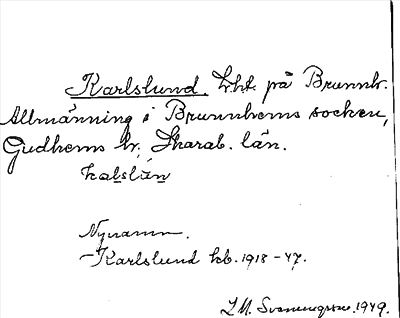 Karlslund. Lht. på Brunnh.
Allmänning i Brunnhems socken,
Gudhems hr, Skarab. län.
kalslän
Nynamn.
Karlslund kb. 1918-47.
1949.